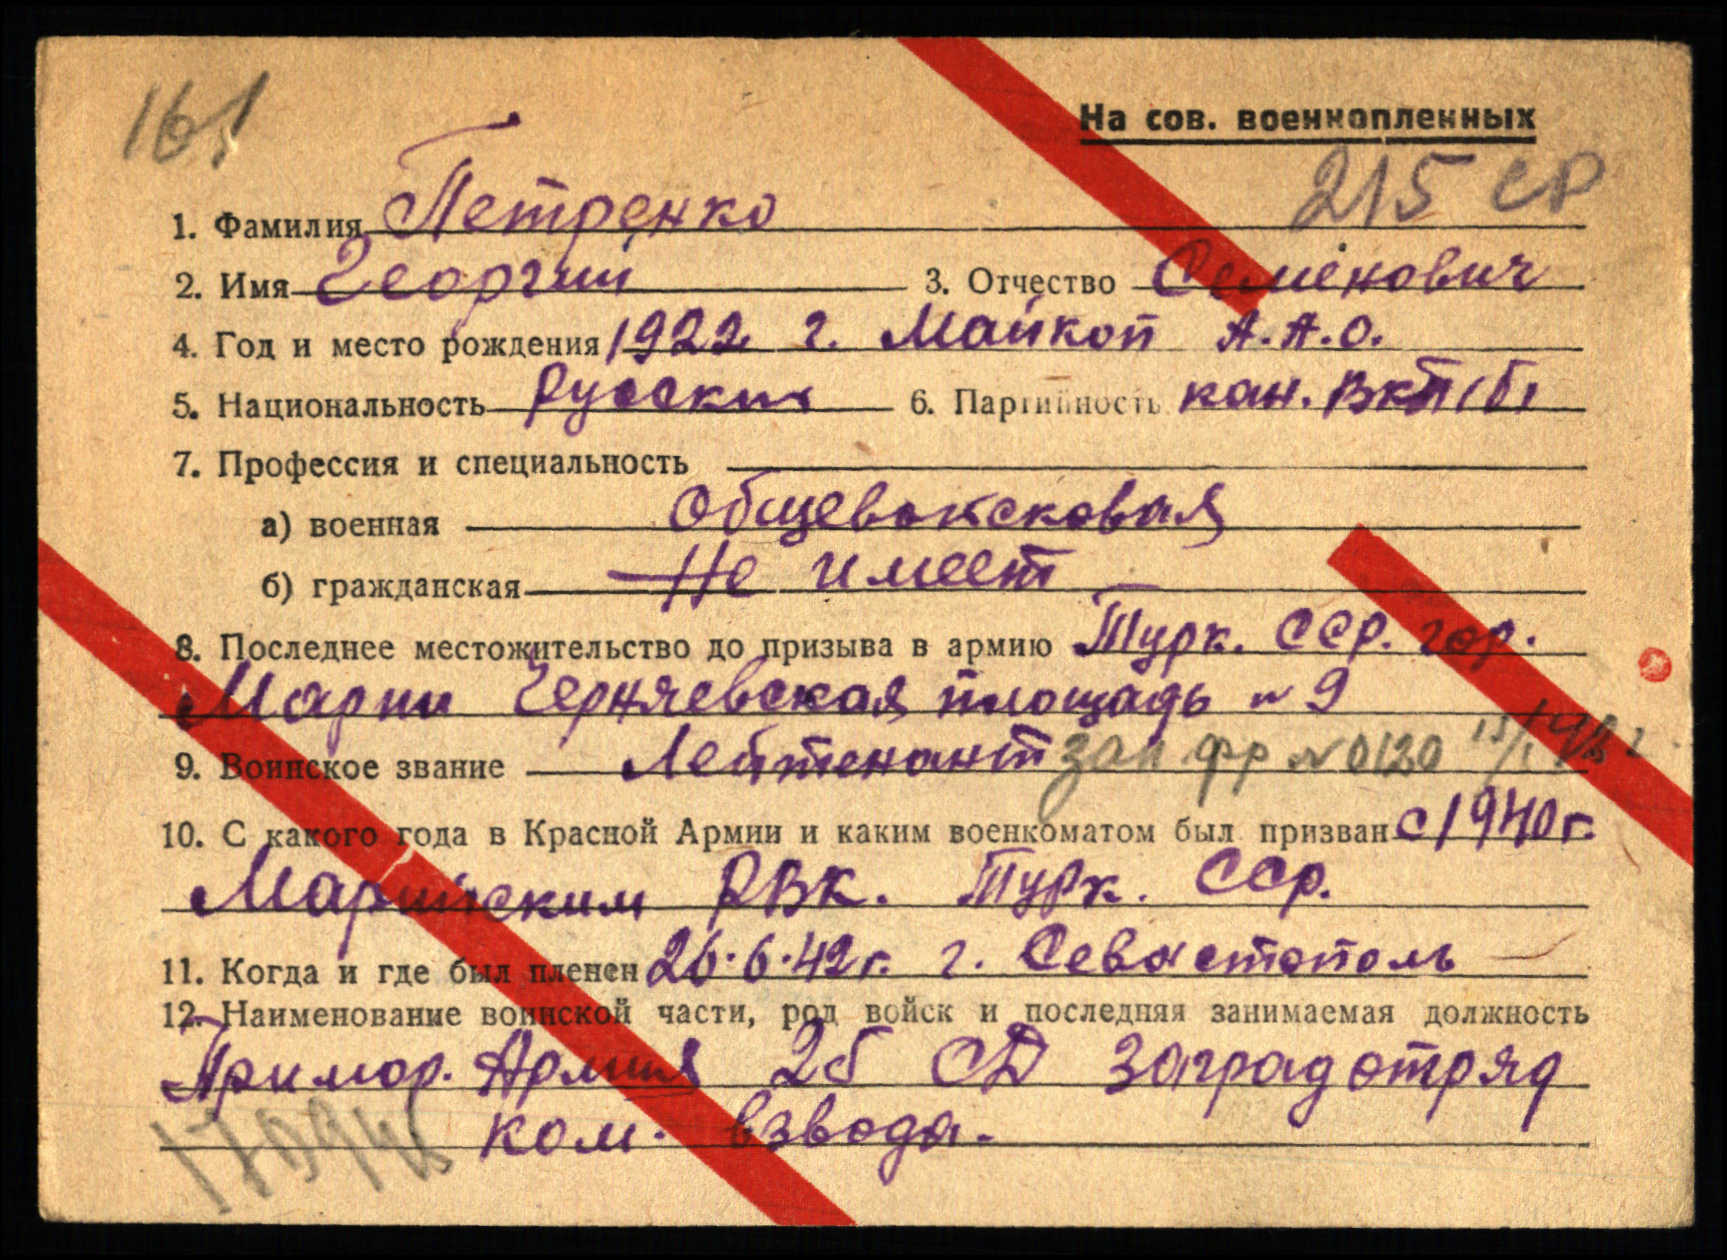 161
На сов. военнопленных
215 СР
1. Фамилия Петренко
2. Имя Георгий 3. Отчество Семёнович
4. Год и место рождения 1922 г. Майкоп А.А.О.
5. Национальность Русский 6. Партийность кан. ВКП(б)
7. Профессия и специальность
а) военная Общевойсковая
б) гражданская Не имеет
8. Последнее местожительство до призыва в армию Турк. ССР. гор.
Мары Черняевская площадь № 9
9. Воинское звание Лейтенант зап фр № 0120
10. С какого года в Красной Армии и каким военкоматом был призван с 1940 г.
Марийским РВК. Турк. ССР.
11. Когда и где был пленен 26.6.42 г. г. Севастополь
12. Наименование воинской части, род войск и последняя занимаемая должность
Примор. Армия 25 СД Заградотряд
ком. взвода.